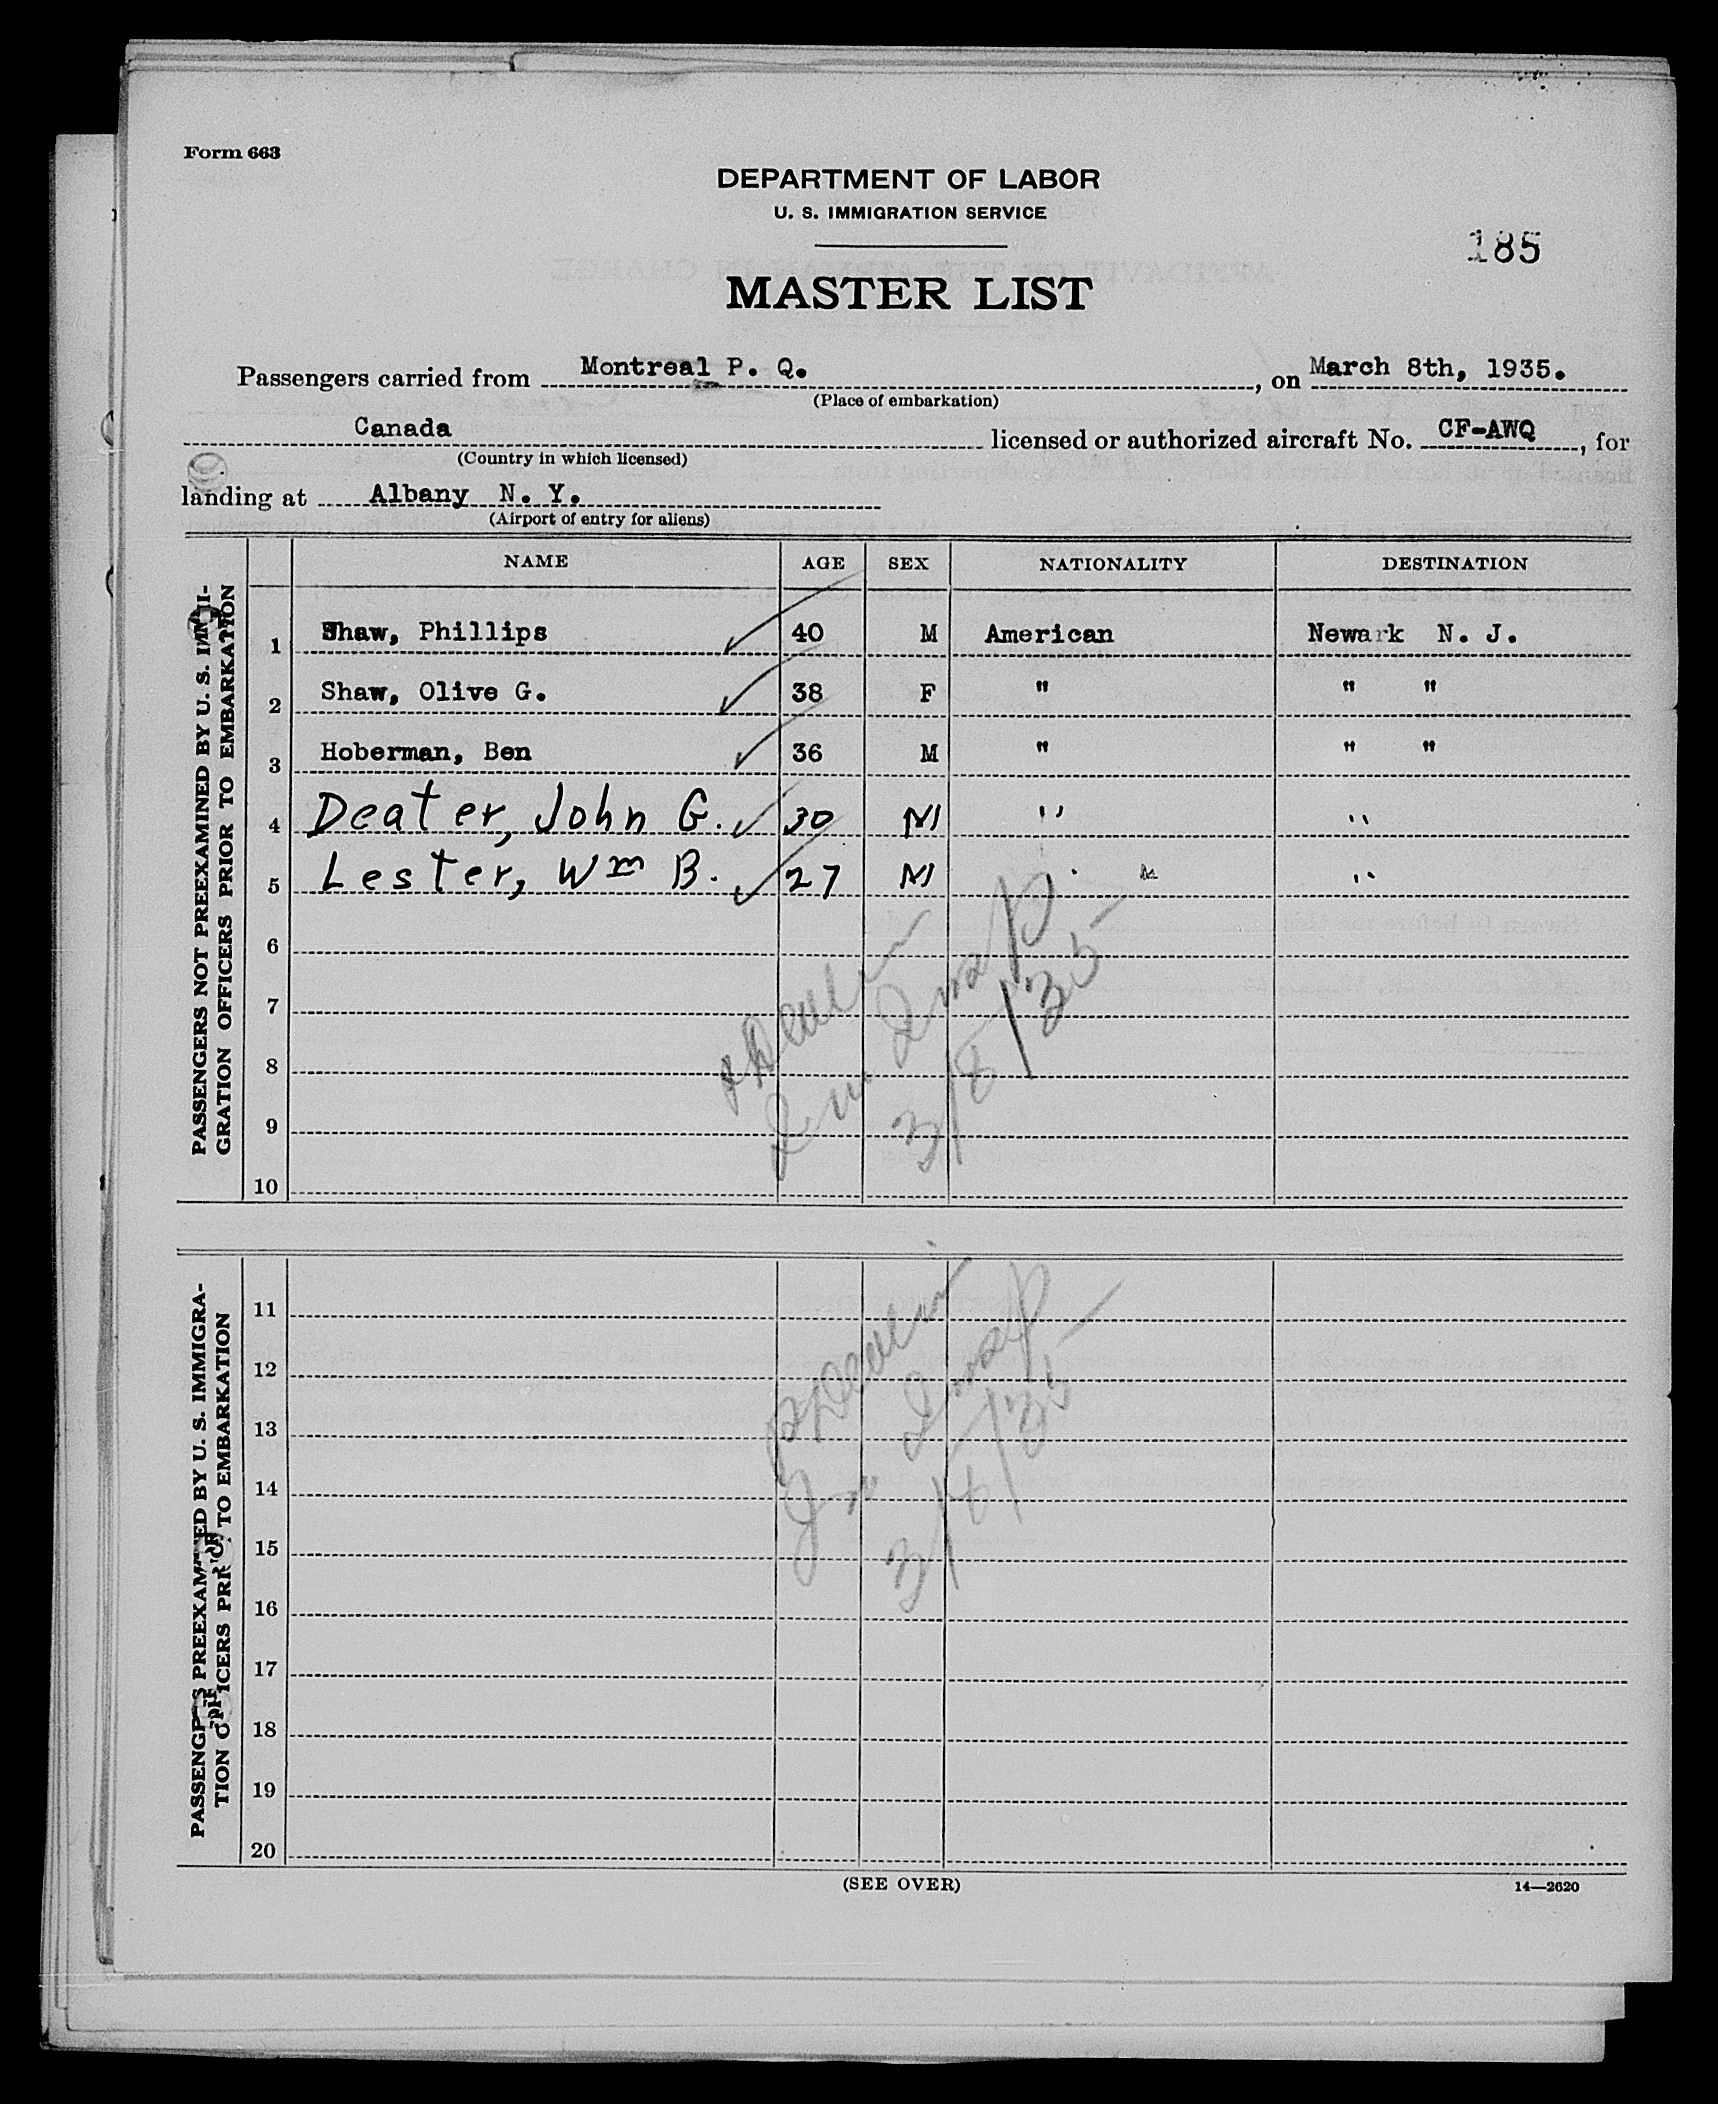 Form 663
DEPARTMENT OF LABOR
U. S. IMMIGRATION SERVICE
185
MASTER LIST
Passengers carried from Montreal P. Q. , on March 8th, 1935.
(Place of embarkation)
Canada licensed or authorized aircraft No. CF-AWQ , for
(Country in which licensed)
landing at Albany N. Y.
(Airport of entry for aliens)
NAME AGE SEX NATIONALITY DESTINATION
PASSENGERS NOT PREEXAMINED BY U. S. IMMI-
GRATION OFFICERS PRIOR TO EMBARKATION
1 Shaw, Phillips 40 M American Newark N. J.
2 Shaw, Olive G. 38 F " " "
3 Hoberman, Ben 36 M " " "
4 Deater, John G. 30 M " "
5 Lester, Wm B. 27 M " "
6
7
8
9
10
3/8/35
PASSENGERS PREEXAMINED BY U. S. IMMIGRA-
TION OFFICERS PRIOR TO EMBARKATION
11
12
13
14
15
16
17
18
19
20
(SEE OVER)
14—2620